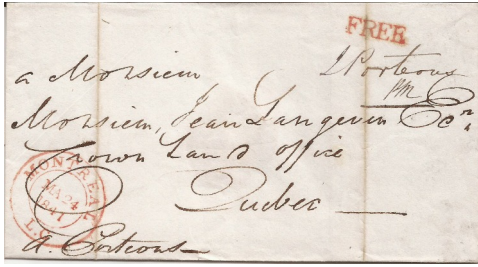 FREE
J Porteous
PM
a Monsieur
Monsieur, Jean Langevin Ecr.
Crown Land office
Quebec
MONTREAL
MA 24
1841
L.C.
A. Porteous